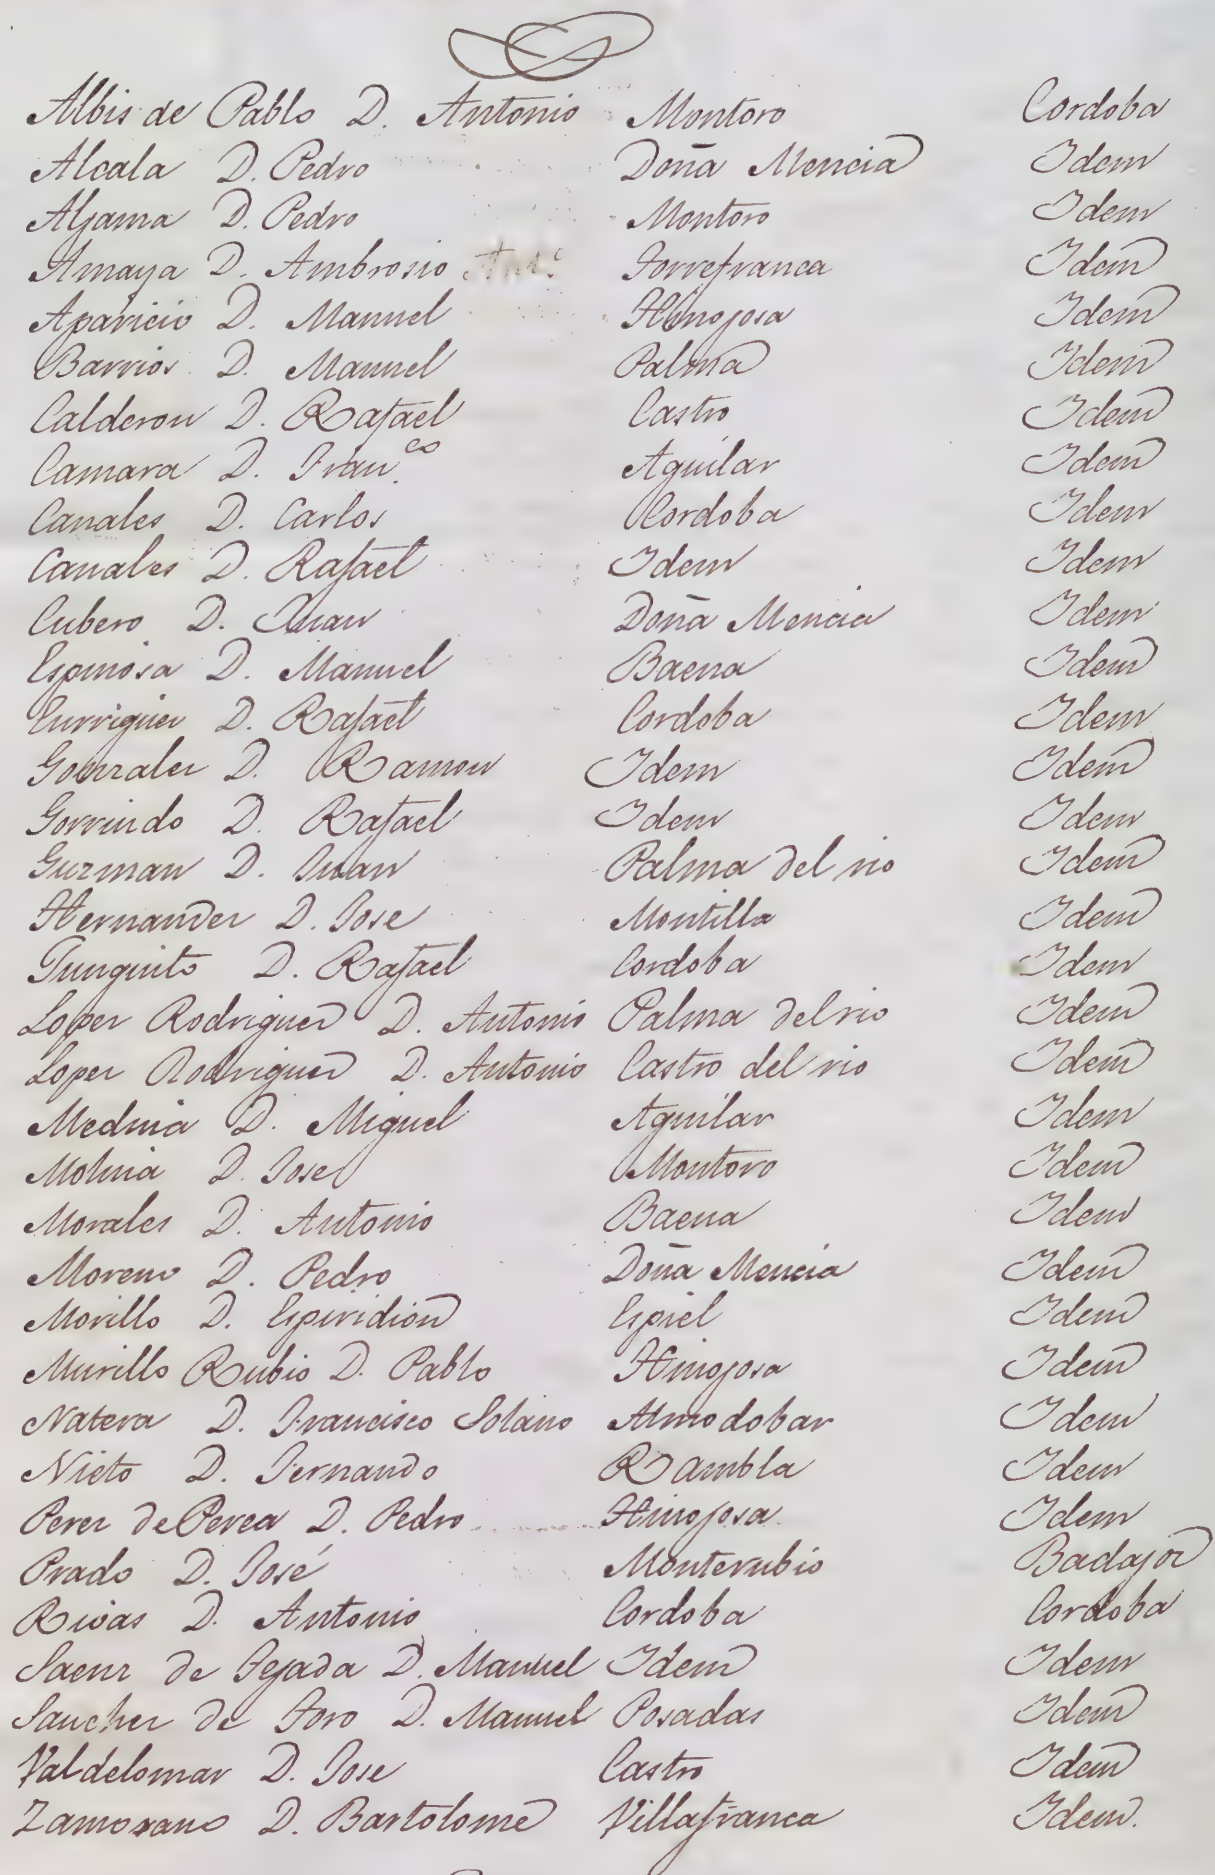 Albis de Pablo D. Antonio Montoro Cordoba
Alcala D. Pedro Doña Mencia Idem
Aljama D. Pedro Montoro Idem
Amaya D. Ambrosio Torrefranca Idem
Aparicio D. Manuel Hinojosa Idem
Barrios D. Manuel Palma Idem
Calderon D. Rafael Castro Idem
Camara D. Fran.co Aguilar Idem
Canales D. Carlos Cordoba Idem
Canales D. Rafael Idem Idem
Cubero D. Juan Doña Mencia Idem
Espinosa D. Manuel Baena Idem
Eurriguer D. Rafael Cordoba Idem
Gonzalez D. Ramon Idem Idem
Gorrindo D. Rafael Idem Idem
Guzman D. Juan Palma del rio Idem
Hernandez D. Jose Montilla Idem
Junquito D. Rafael Cordoba Idem
Lopez Rodriguez D. Antonio Palma del rio Idem
Lopez Rodriguez D. Antonio Castro del rio Idem
Medina D. Miguel Aguilar Idem
Molina D. Jose Montoro Idem
Morales D. Antonio Baena Idem
Moreno D. Pedro Doña Mencia Idem
Morillo D. Espiridion Espiel Idem
Murillo Rubio D. Pablo Hinojosa Idem
Natera D. Francisco Solano Almodobar Idem
Nieto D. Fernando Rambla Idem
Perez de Perea D. Pedro Hinojosa Idem
Prado D. José Monterubio Badajoz
Rivas D. Antonio Cordoba Cordoba
Saenz de Tejada D. Manuel Idem Idem
Sanchez de Toro D. Manuel Posadas Idem
Valdelomar D. Jose Castro Idem
Zamorano D. Bartolome Villafranca Idem.